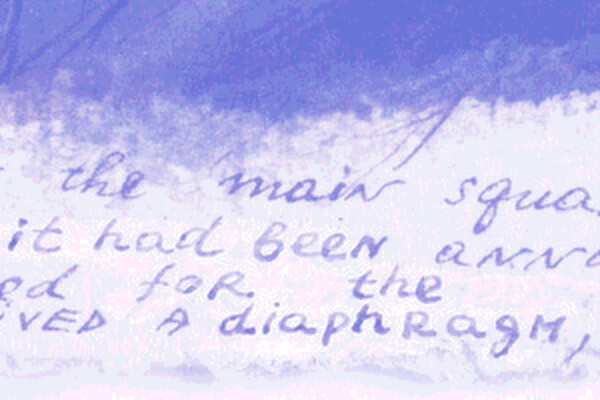 the main squa
it had been anno
ed for the
IVED A diaphRagM,